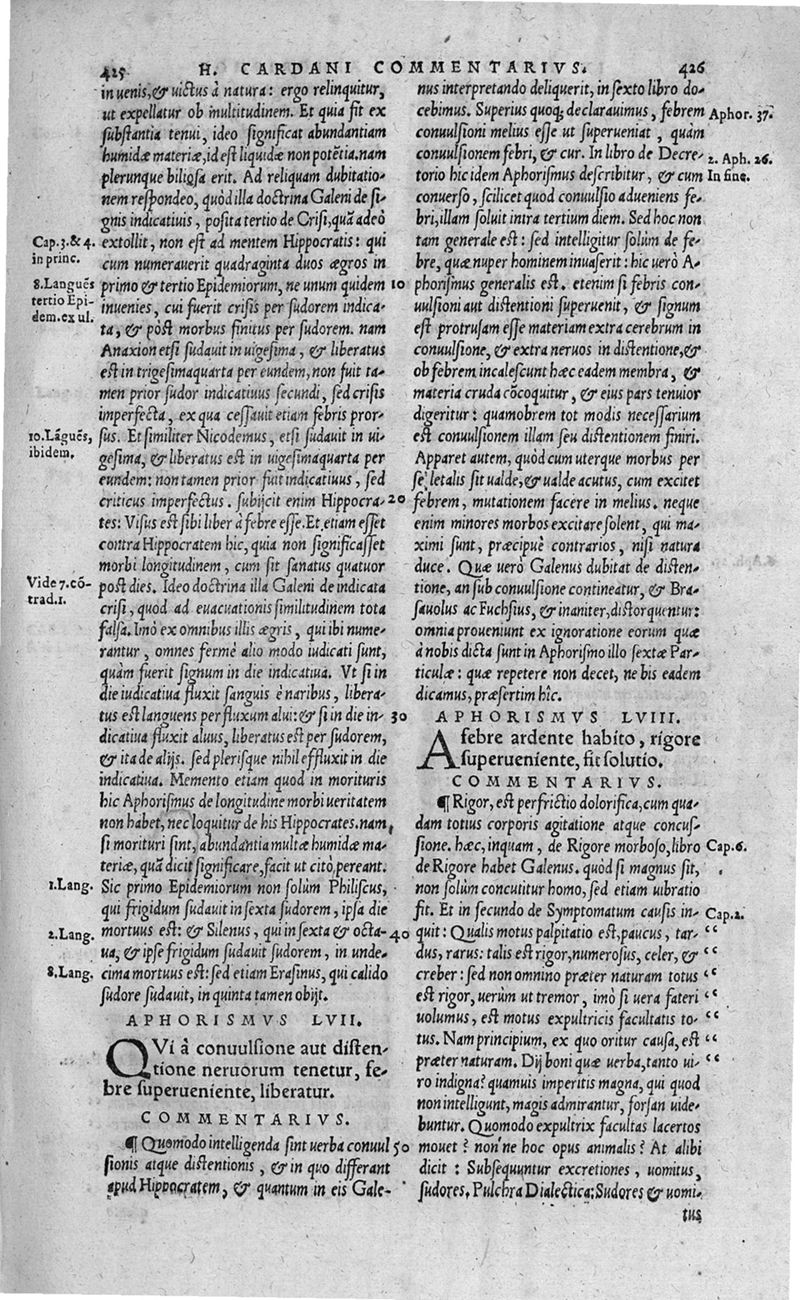 425 H. CARDANI COMMENTARIVS. 426
inuenis, & uictus à natura: ergo relinquitur,
ut expellatur ob multitudinem. Et quia fit ex
substantia tenui, ideo significat abundantiam
humidæ materiæ, id est liquidæ non potẽtia. nam
plerunque biliosa erit. Ad reliquam dubitatio-
nem respondeo, quòd illa doctrina Galeni de si-
gnis indicatiuis, posita tertio de Crisi, quã adeò
Cap.3.& 4. extollit, non est ad mentem Hippocratis: qui
in princ.
cum numerauerit quadraginta duos ægros in
8.Languẽs primo & tertio Epidemiorum, ne unum quidem 10
tertio Epi-
inuenies, cui fuerit crisis per sudorem indica-
dem.ex ul.
ta, & pòst morbus finitus per sudorem. nam
Anaxion etsi sudauit in uigesima, & liberatus
est in trigesimaquarta per eundem, non fuit ta-
men prior sudor indicatiuus secundi, sed crisis
imperfecta, ex qua cessauit etiam febris pror-
10.Lãguẽs, sus. Et similiter Nicodemus, etsi sudauit in ui-
ibidem.
gesima, & liberatus est in uigesimaquarta per
eundem: non tamen prior fuit indicatiuus, sed
criticus imperfectus. subijcit enim Hippocra- 20
tes: Visus est sibi liber à febre esse. Et etiam esset
contra Hippocratem hic, quia non significasset
morbi longitudinem, cum sit sanatus quatuor
Vide 7.cõ- post dies. Ideo doctrina illa Galeni de indicata
trad.1.
crisi, quod ad euacuationis similitudinem tota
falsa. Imò ex omnibus illis ægris, qui ibi nume-
rantur, omnes fermè alio modo iudicati sunt,
quàm fuerit signum in die indicatiua. Vt si in
die iudicatiua fluxit sanguis è naribus, libera-
tus est languens per fluxum alui: & si in die in- 30
dicatiua fluxit aluus, liberatus est per sudorem,
& ita de alijs. sed plerisque nihil effluxit in die
indicatiua. Memento etiam quod in morituris
hic Aphorismus de longitudine morbi ueritatem
non habet, nec loquitur de his Hippocrates. nam,
si morituri sint, abundantia multæ humidæ ma-
teriæ, quã dicit significare, facit ut citò pereant.
1.Lang. Sic primo Epidemiorum non solùm Philiscus,
qui frigidum sudauit in sexta sudorem, ipsa die
2.Lang. mortuus est: & Silenus, qui in sexta & octa- 40
ua, & ipse frigidum sudauit sudorem, in unde-
8.Lang. cima mortuus est: sed etiam Erasinus, qui calido
sudore sudauit, in quinta tamen obijt.
APHORISMVS LVII.
QVi à conuulsione aut disten-
tione neruorum tenetur, fe-
bre superueniente, liberatur.
COMMENTARIVS.
¶ Quomodo intelligenda sint uerba conuul 50
sionis atque distentionis, & in quo differant
apud Hippocratem, & quantum in eis Gale-
nus interpretando deliquerit, in sexto libro do-
cebimus. Superius quoq; declarauimus, febrem Aphor. 37.
conuulsioni melius esse ut superueniat, quàm
conuulsionem febri, & cur. In libro de Decre- 2. Aph. 26.
torio hic idem Aphorismus describitur, & cum In fine.
conuerso, scilicet quod conuulsio adueniens fe-
bri, illam soluit intra tertium diem. Sed hoc non
tam generale est: sed intelligitur solùm de fe-
bre, quæ nuper hominem inuaserit: hic uerò A-
phorismus generalis est. etenim si febris con-
uulsioni aut distentioni superuenit, & signum
est protrusam esse materiam extra cerebrum in
conuulsione, & extra neruos in distentione, &
ob febrem incalescunt hæc eadem membra, &
materia cruda cõcoquitur, & eius pars tenuior
digeritur: quamobrem tot modis necessarium
est conuulsionem illam seu distentionem finiri.
Apparet autem, quòd cum uterque morbus per
se letalis sit ualde, & ualde acutus, cum excitet
febrem, mutationem facere in melius. neque
enim minores morbos excitare solent, qui ma-
ximi sunt, præcipuè contrarios, nisi natura
duce. Quæ uerò Galenus dubitat de disten-
tione, an sub conuulsione contineatur, & Bra-
sauolus ac Fuchsius, & inaniter, distorquentur:
omnia proueniunt ex ignoratione eorum quæ
à nobis dicta sunt in Aphorismo illo sextæ Par-
ticulæ: quæ repetere non decet, ne bis eadem
dicamus, præsertim hîc.
APHORISMVS LVIII.
A febre ardente habito, rigore
superueniente, fit solutio.
COMMENTARIVS.
¶ Rigor, est perfrictio dolorifica, cum qua-
dam totius corporis agitatione atque concus-
sione. hæc, inquam, de Rigore morboso, libro Cap.6.
de Rigore habet Galenus. quòd si magnus sit,
non solùm concutitur homo, sed etiam uibratio
fit. Et in secundo de Symptomatum causis in- Cap.2.
quit: Qualis motus palpitatio est, paucus, tar- “
dus, rarus: talis est rigor, numerosus, celer, & “
creber: sed non omnino præter naturam totus “
est rigor, uerùm ut tremor, imò si uera fateri “
uolumus, est motus expultricis facultatis to- “
tus. Nam principium, ex quo oritur causa, est “
præter naturam. Dij boni quæ uerba, tanto ui- “
ro indigna? quamuis imperitis magna, qui quod
non intelligunt, magis admirantur, forsan uide-
buntur. Quomodo expultrix facultas lacertos
mouet? non'ne hoc opus animalis? At alibi
dicit: Subsequuntur excretiones, uomitus,
sudores. Pulchra Dialectica: Sudores & uomi-
tus